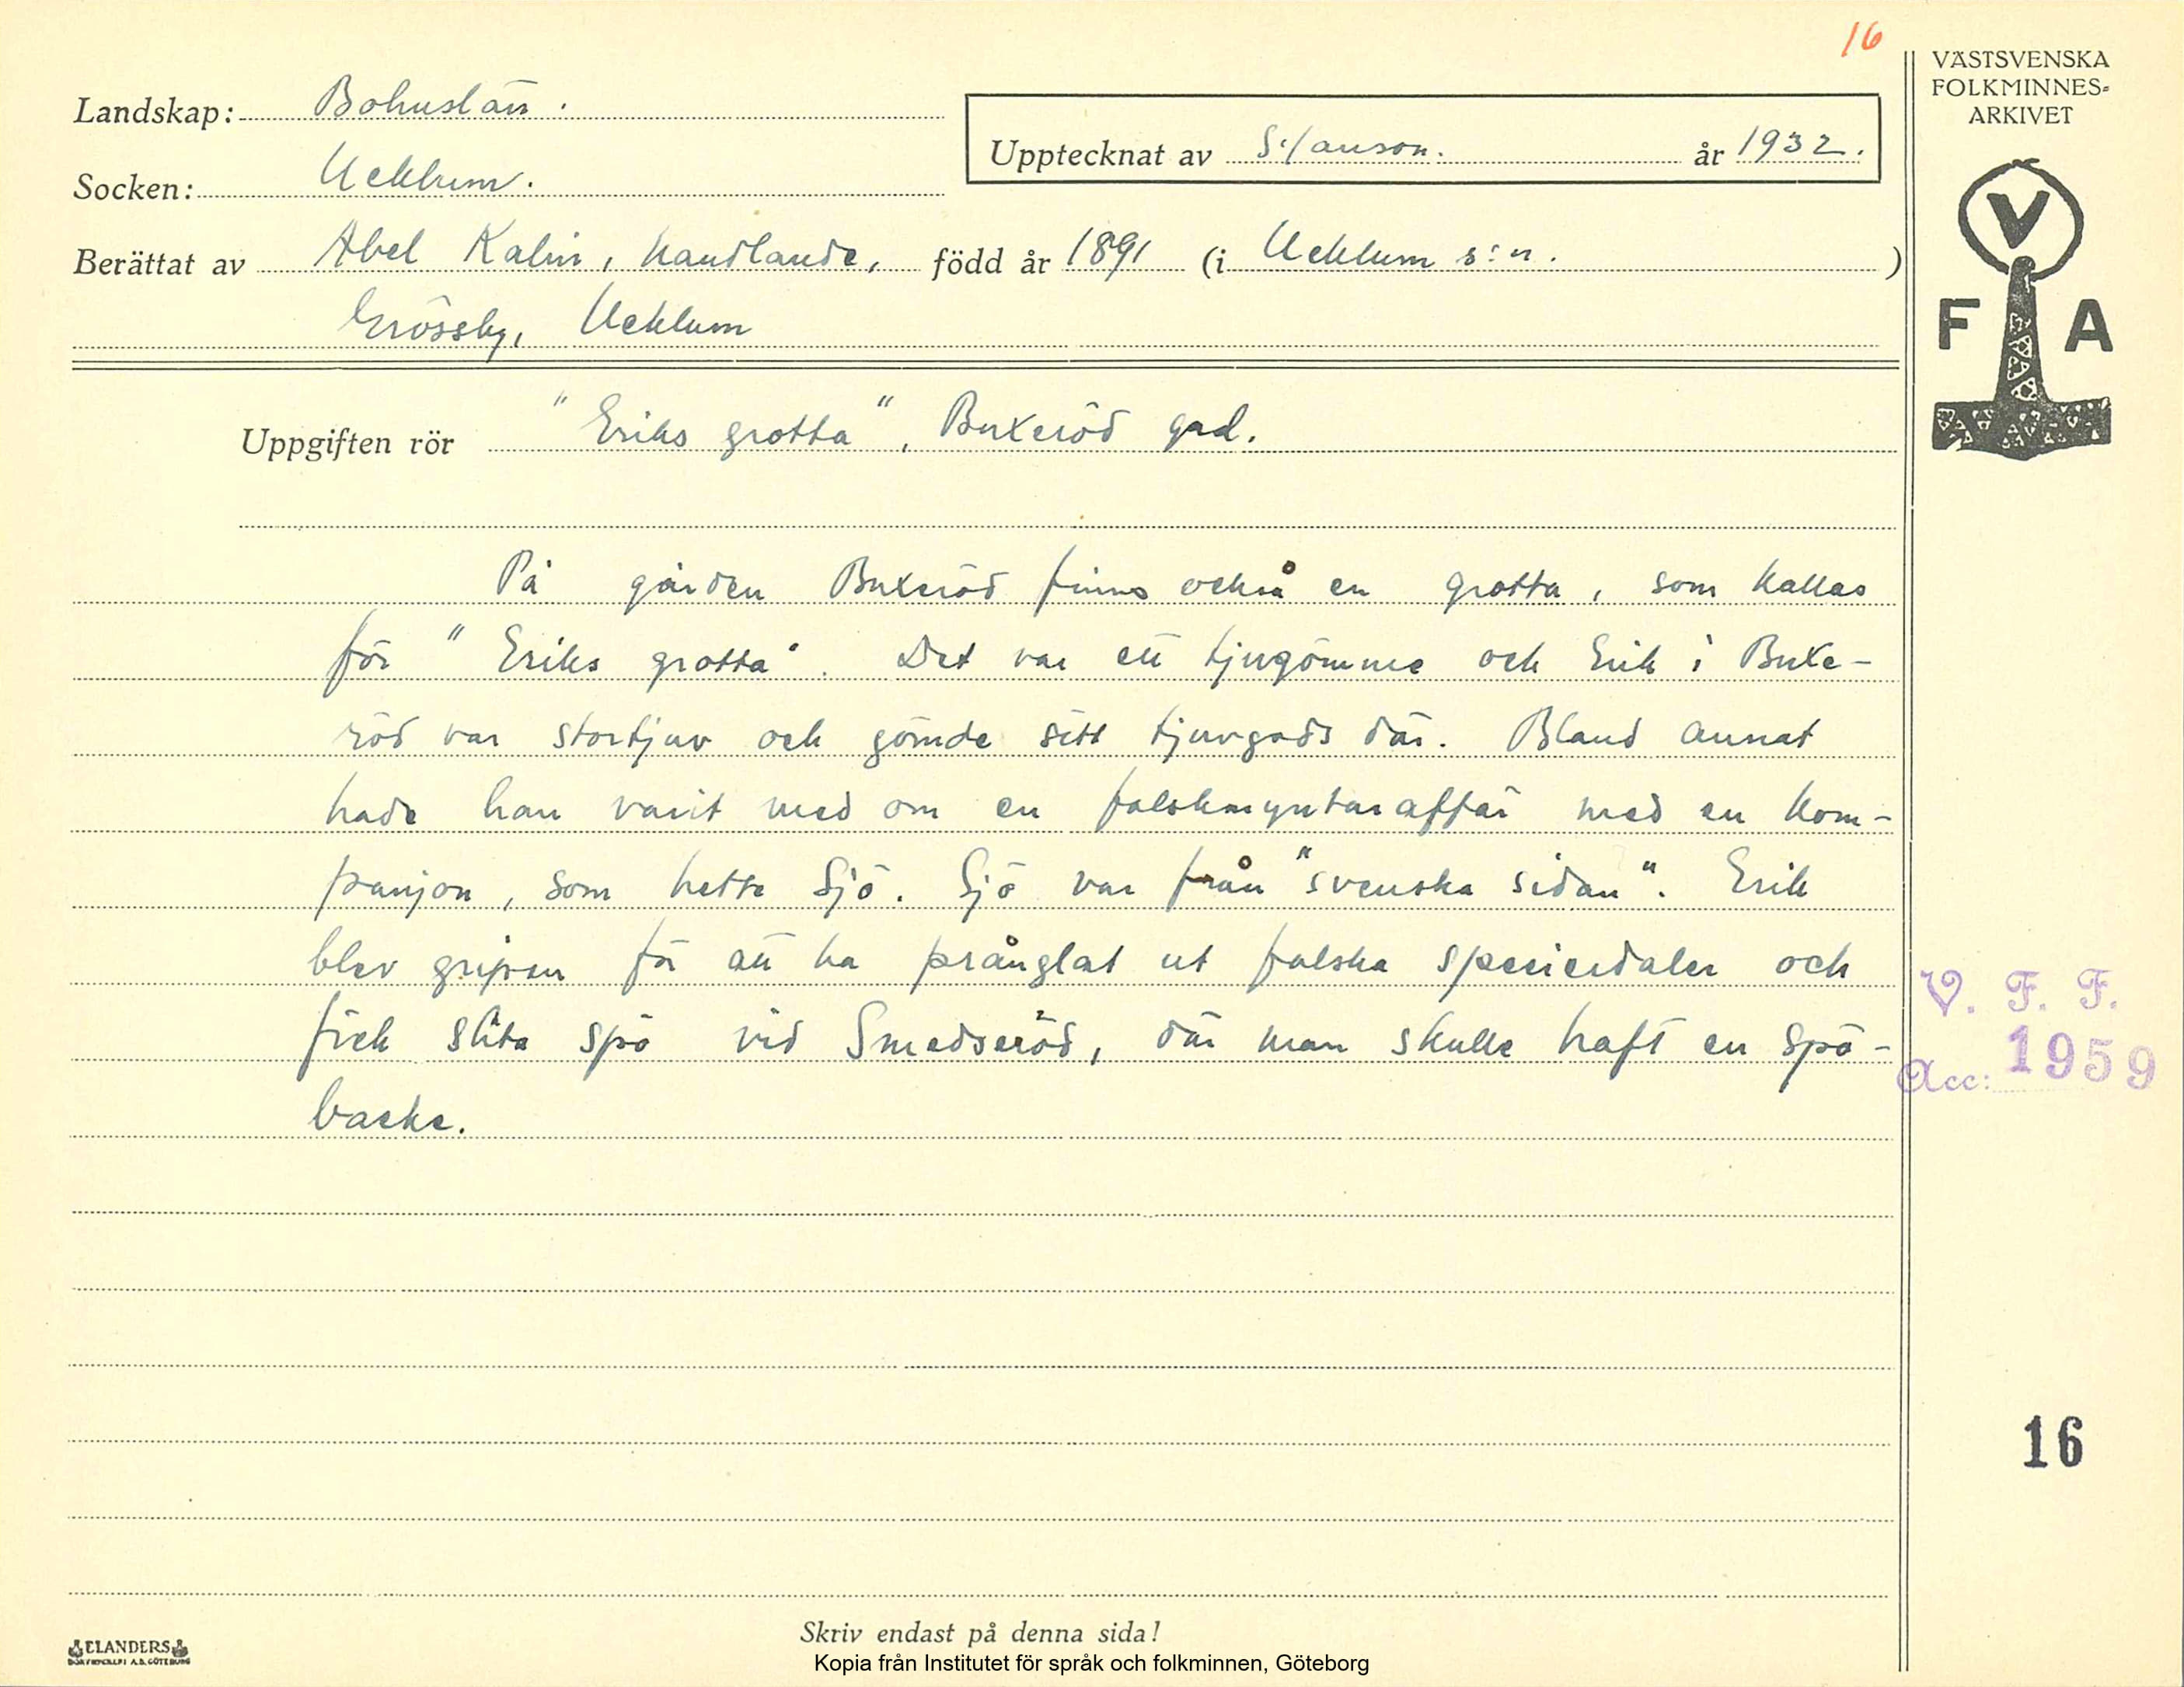 16
VÄSTSVENSKA
FOLKMINNES-
ARKIVET
Landskap: Bohuslän.
Upptecknat av år 1932.
Socken: Ucklum.
Berättat av Abel Kalin, handlande, född år 1891 (i Ucklum s:n.)
Grössby, Ucklum
V
F A
Uppgiften rör "Eriks grotta", Buxeröd gård.
På gården Buxeröd finns också en grotta, som kallas
för "Eriks grotta". Det var ett tjuvgömme och Erik i Buxe-
röd var stortjuv och gömde sitt tjuvgods där. Bland annat
hade han varit med om en falskmyntaraffär med en kom-
panjon, som hette Sjö. Sjö var från "svenska sidan". Erik
blev gripen för att ha prånglat ut falska speciedaler och
fick slita spö vid Smedseröd, där man skulle haft en spö-
backe.
V. F. F.
Acc: 1959
16
Skriv endast på denna sida!
ELANDERS
BOKTRYCKERI A.B. GÖTEBORG
Kopia från Institutet för språk och folkminnen, Göteborg